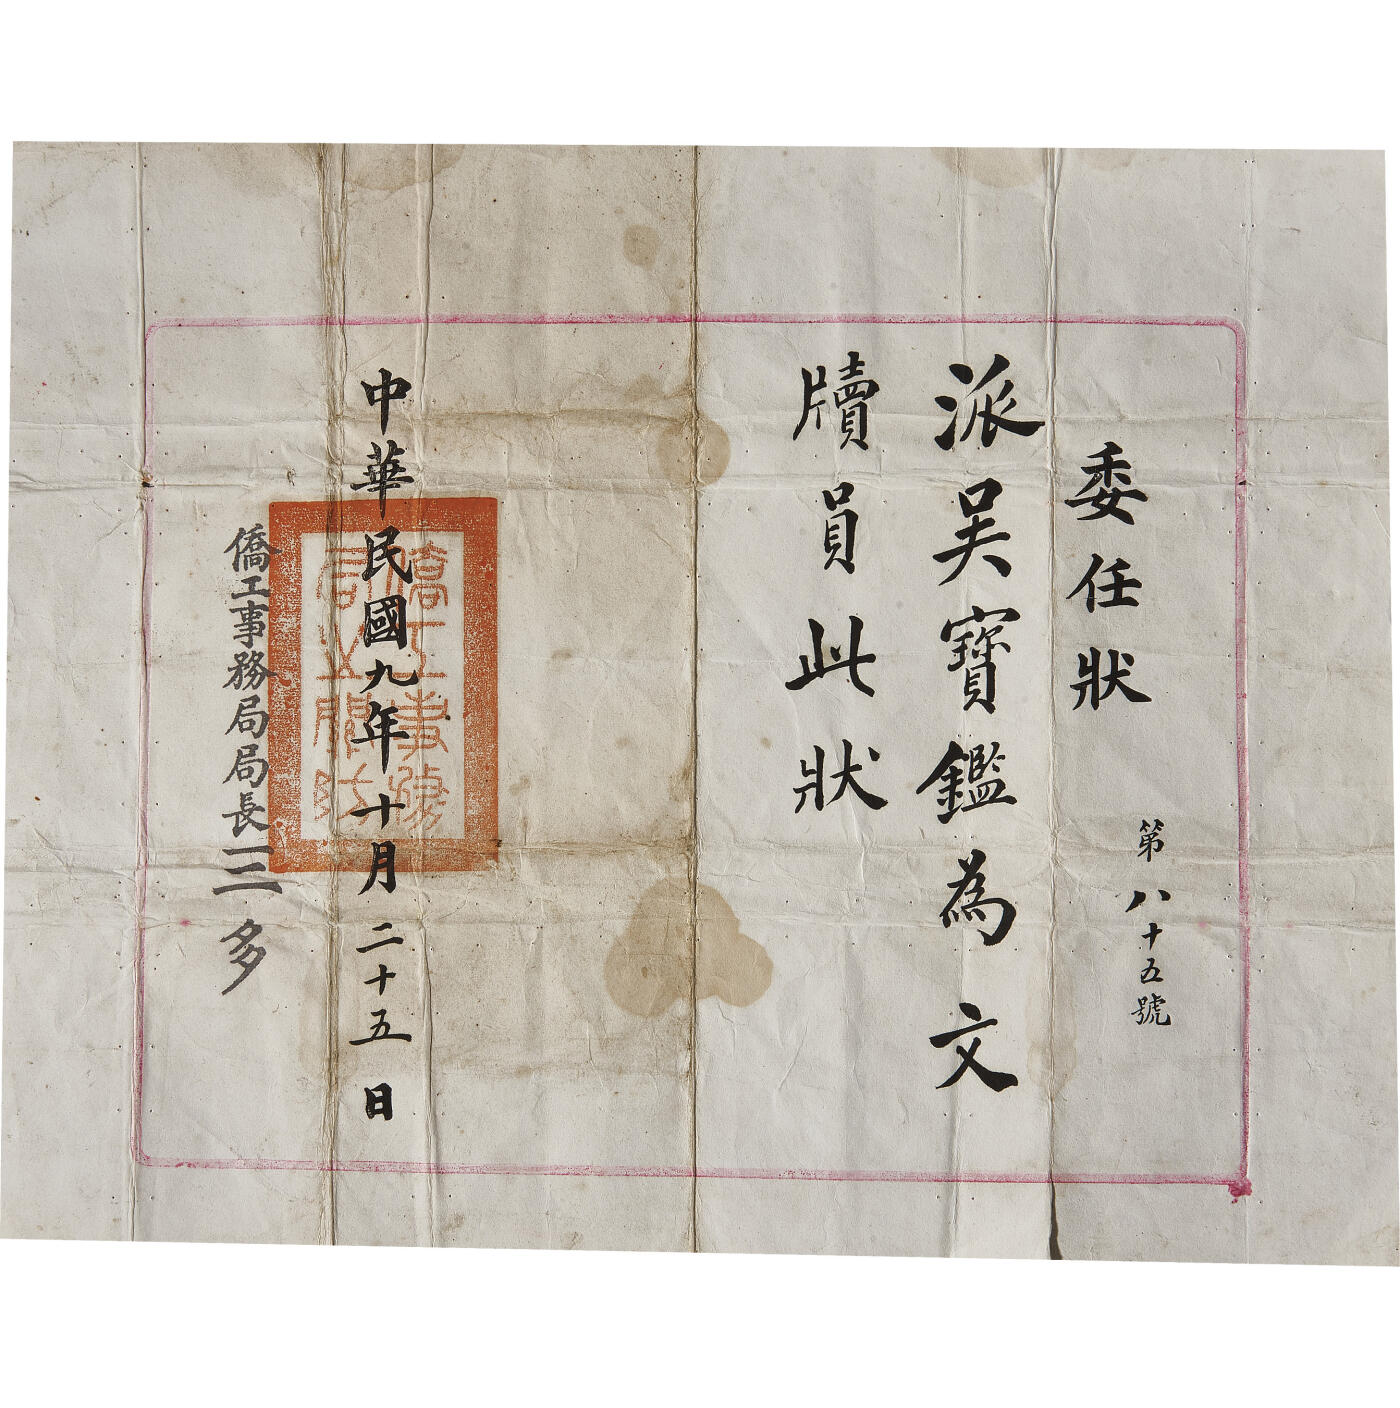 委任狀
第八十五號
派吳寶鑑為文
牘員此狀
中華民國九年十月二十五日
僑工事務局局長三多
僑工事務
局之關防